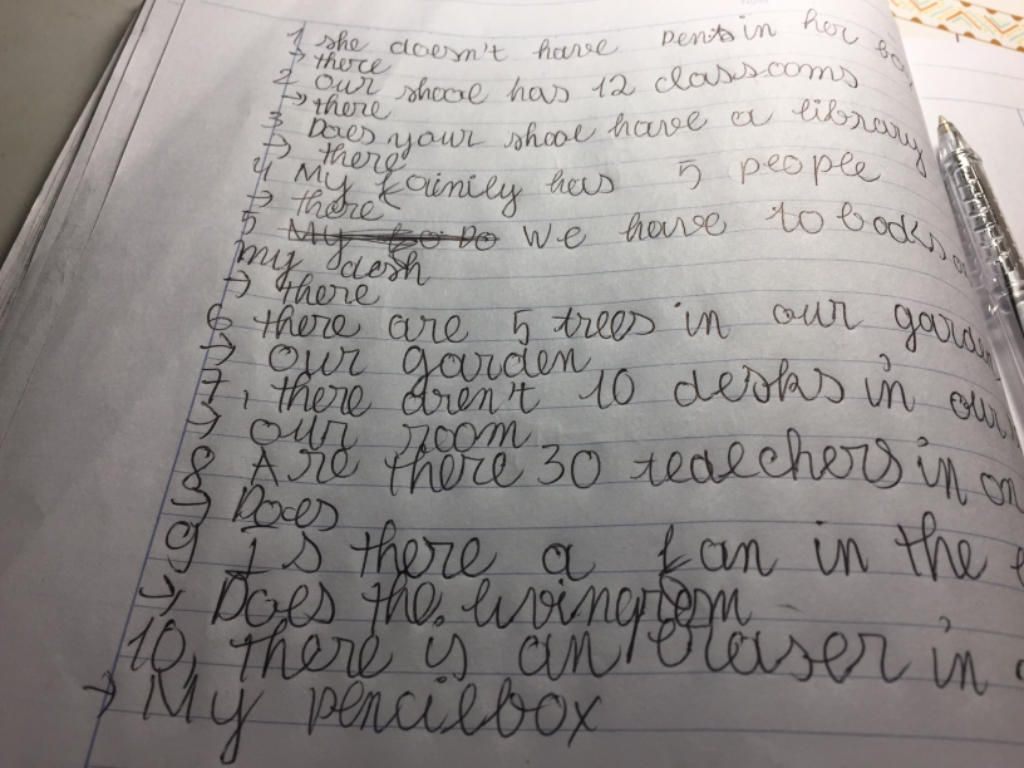 1 she doesn't have pents in her
→ there
2 our shool has 12 classooms
→ there
3 Does your shool have a library
→ there
4 My fainily has 5 people
→ there
5 We have to books
my desh
→ there
6 there are 5 trees in our garden
→ our garden
7, there aren't 10 desks in our
→ our room
8 Are there 30 teachers in
→ Does
9 Is there a fan in the
→ Does the livingroom
10, there is an eraser in
→ My pencilbox